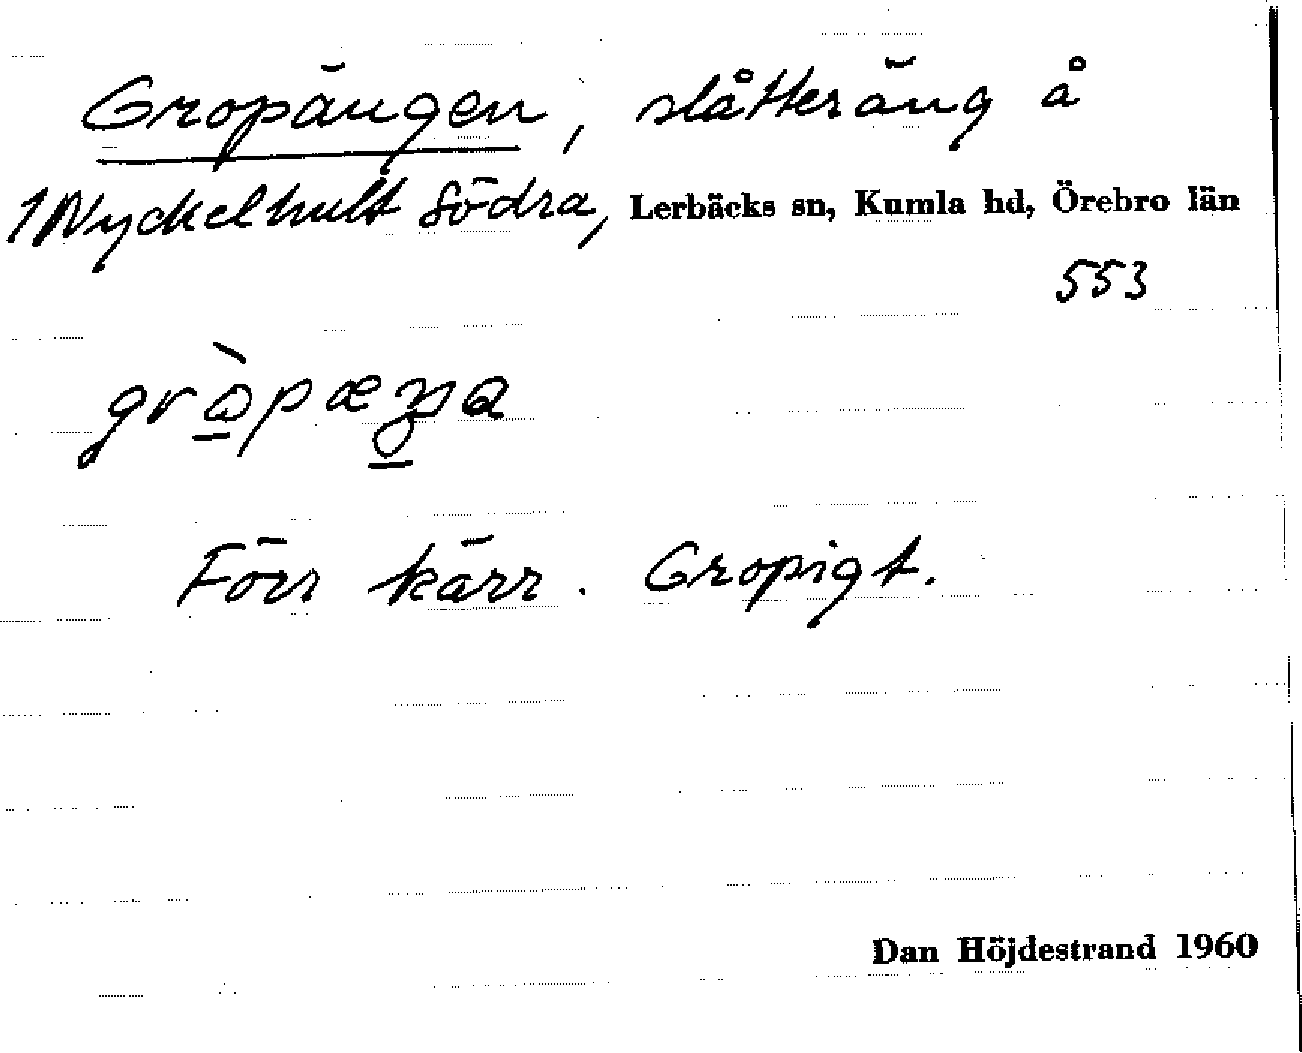 Gropängen, slåtteräng å
1 Nyckelhult Södra, Lerbäcks sn, Kumla hd, Örebro län
553
Förr kärr. Gropigt.
Dan Höjdestrand 1960